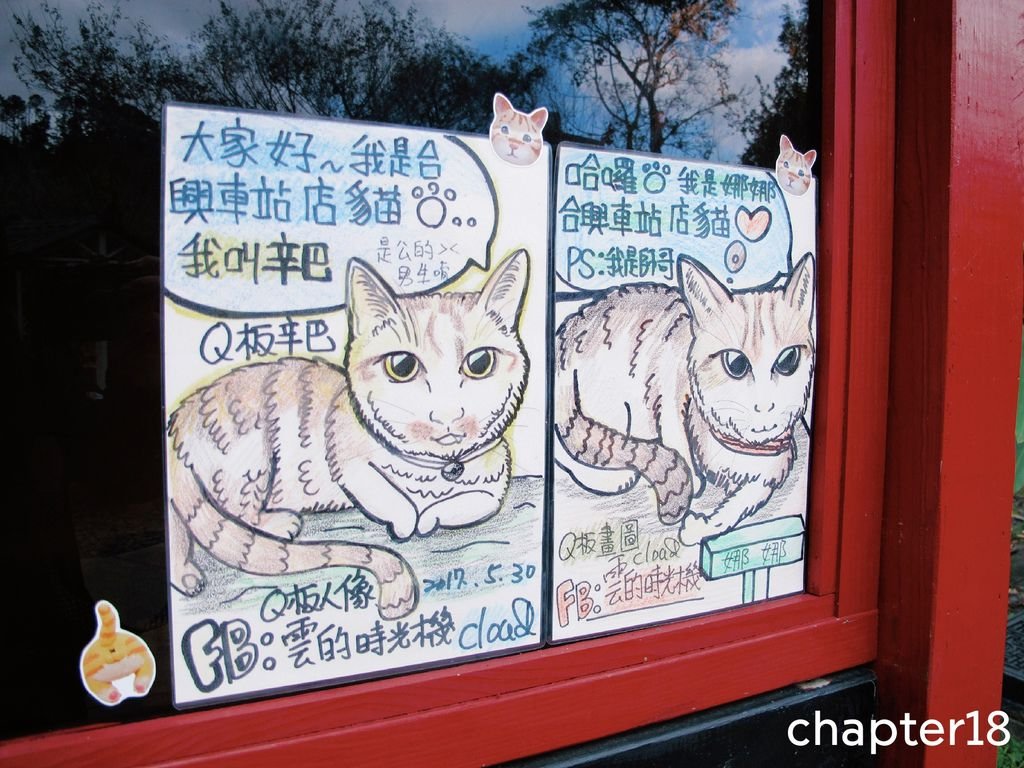 大家好~我是合
興車站店貓..
我叫辛巴
是公的><
男生唷
Q板辛巴
Q板人像
2017.5.30
FB:雲的時光機
cloud
哈囉 我是娜娜
合興車站店貓
PS:我是師哥
Q板畫圖
cloud
FB:雲的時光機
娜娜
chapter18